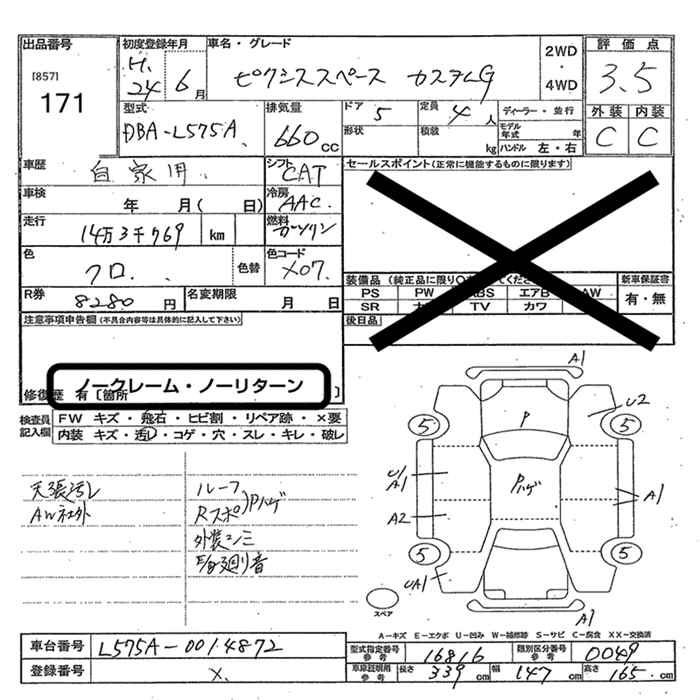 出品番号 初度登録年月 車名・グレード 2WD・4WD 評価点
[857]
171
H.24 6月 ピクシススペース カスタムG 3.5
型式 排気量 ドア 5 定員 4人 ディーラー・並行 外装 内装
DBA-L575A 660cc 形状 積載 kg モデル年式 年 C C
ハンドル 左・右
車歴 自家用 シフト CAT セールスポイント(正常に機能するものに限ります)
車検 年 月( 日) 冷房 AAC
走行 14万3千769 km 燃料 ガソリン
色 クロ. 色替 色コード X07.
装備品(純正品に限り○ てくださ 新車保証書
PS PW ABS エアB AW 有・無
SR TV カワ
R券 8280円 名変期限 月 日
後日品
注意事項申告欄(不具合内容等は具体的に記入して下さい)
ノークレーム・ノーリターン
修復歴 有〔箇所 〕
検査員記入欄 FW キズ・飛石・ヒビ割・リペア跡・×要
内装 キズ・汚レ・コゲ・穴・スレ・キレ・破レ
天張汚レ
AW社外
ルーフ
Rスポ)Pハゲ
外装シミ
廻り音
A1
U2
P
5 5
U/A1
Pハゲ
A1
A2
5 5
UA1
A1
スペア
A-キズ E-エクボ U-凹み W-補修跡 S-サビ C-腐食 XX-交換済
車台番号 L575A-0014872
登録番号 X.
型式指定番号 参考 16816 類別区分番号 参考 0049
車庫証明用 参考 長さ 339cm 幅 147cm 高さ 165cm